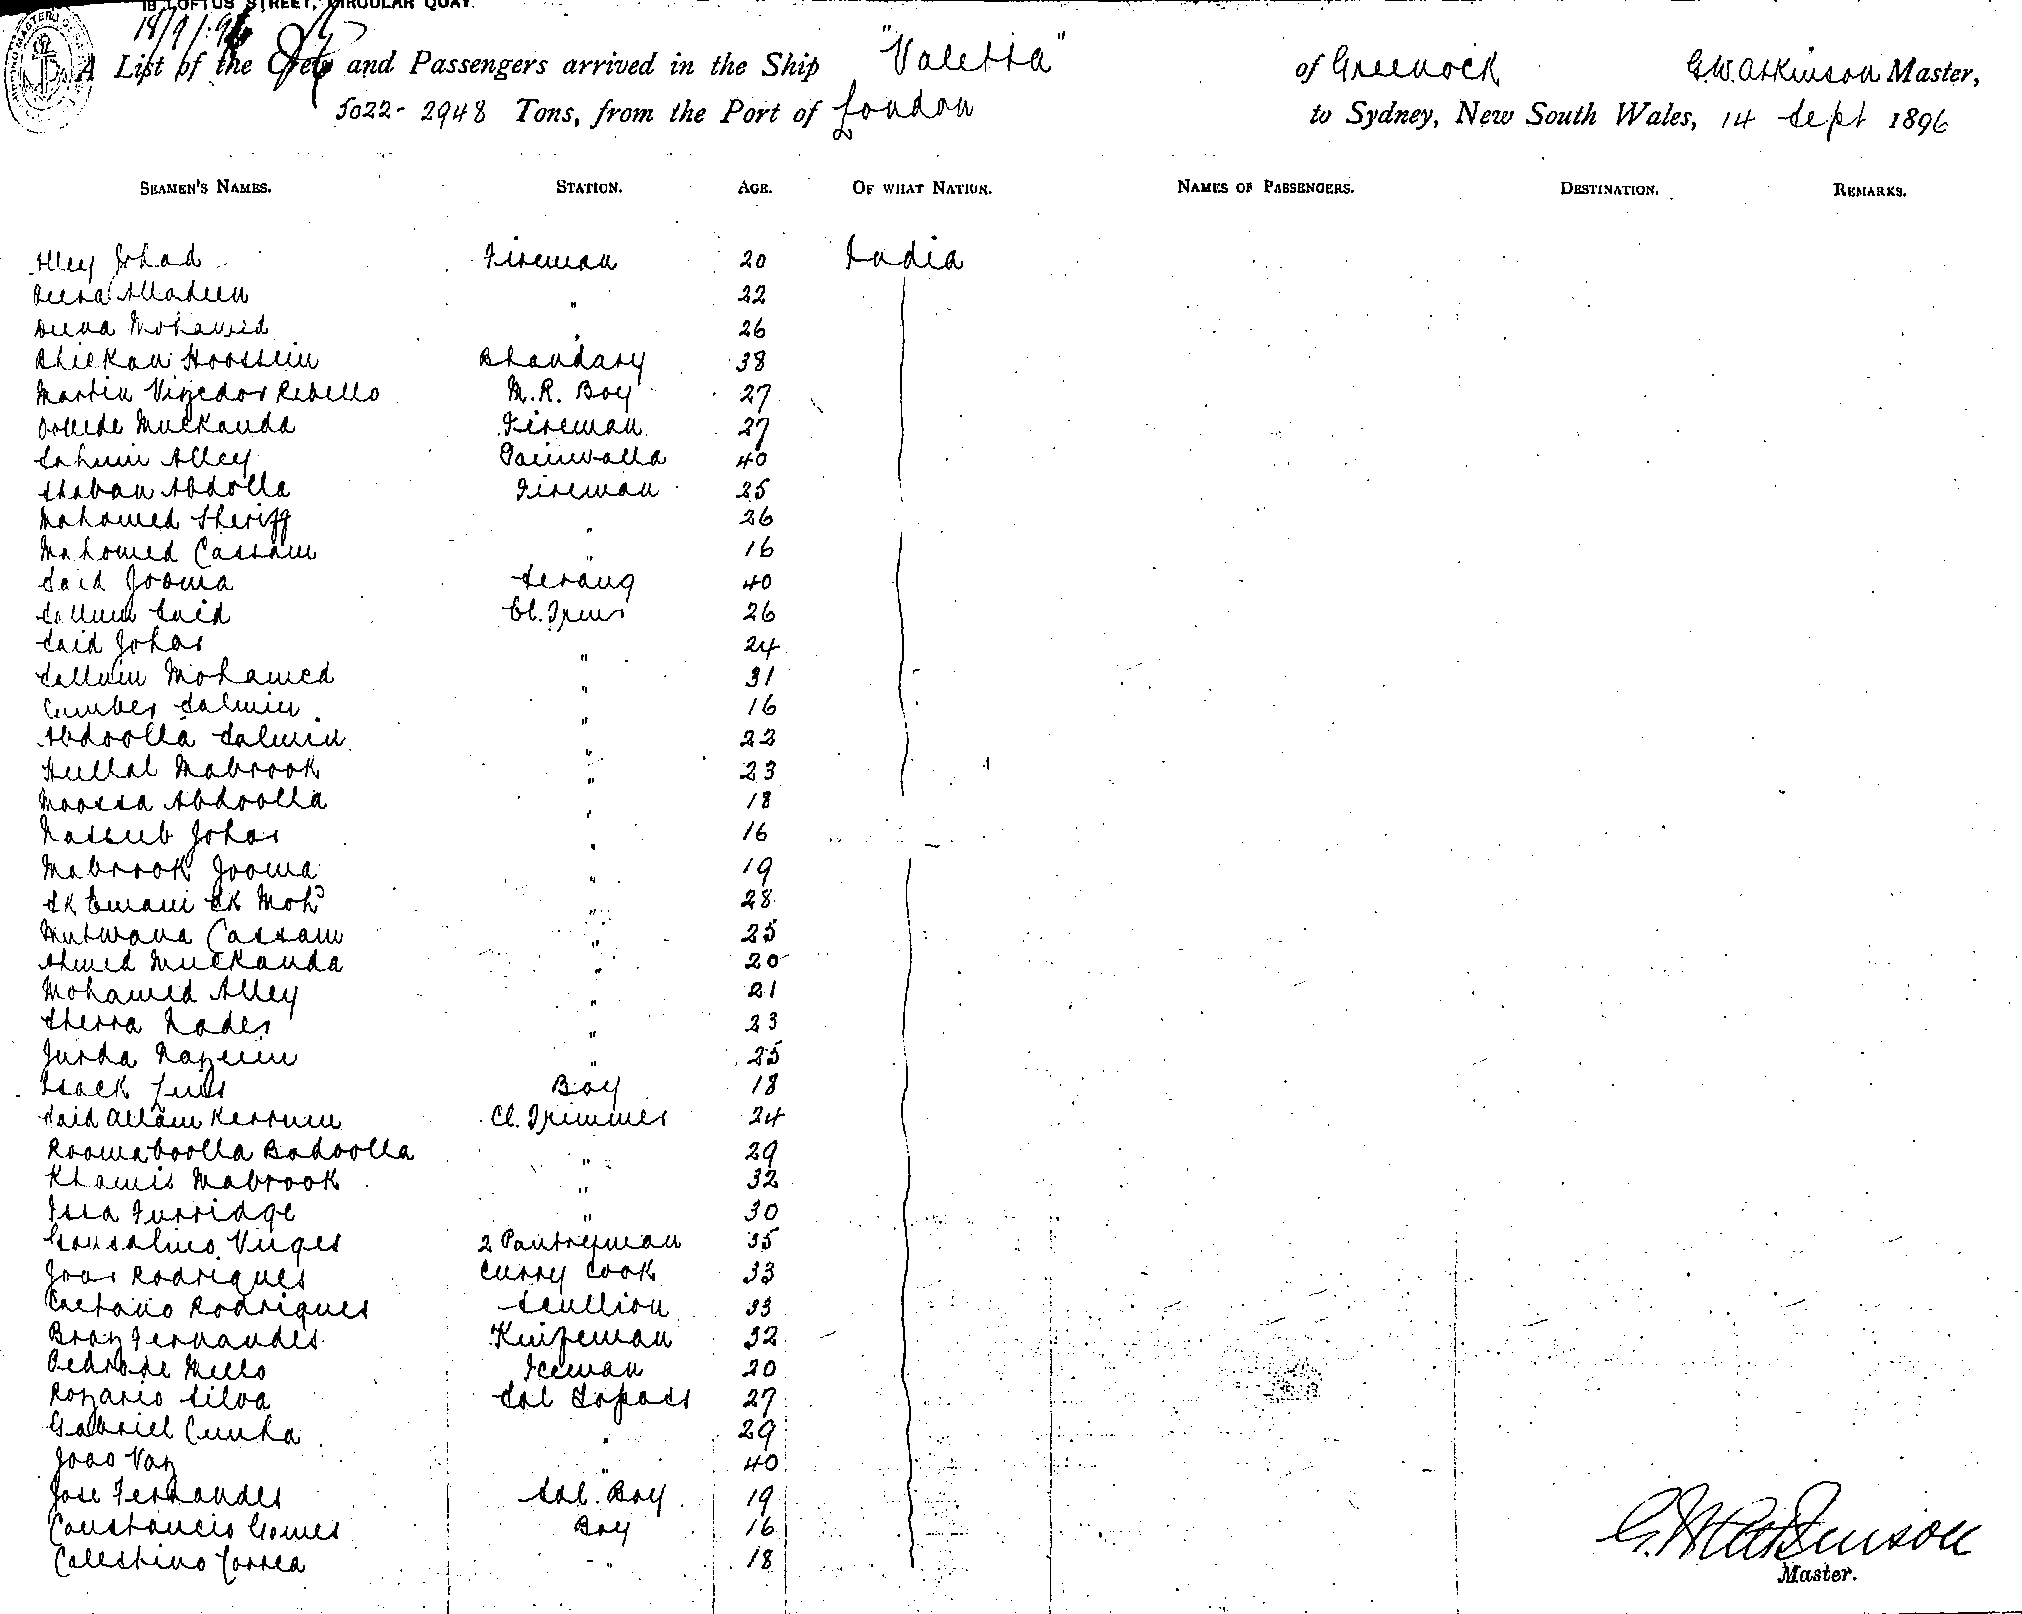 18 LOFTUS STREET, CIRCULAR QUAY.
18/9/96
A List of the Crew and Passengers arrived in the Ship "Valetta" of Greenock G.W. Atkinson Master,
5022 - 2948 Tons, from the Port of London to Sydney, New South Wales, 14 Sept 1896
SEAMEN'S NAMES. STATION. AGE. OF WHAT NATION. NAMES OF PASSENGERS. DESTINATION. REMARKS.
Alley Johad Fireman 20 India
Alladeen " 22
Mohamed " 26
Hoossein Bhandary 38
Martin Rebello M.R. Boy 27
Muckanda Fireman 27
Alley Paniwalla 40
Shaban Abdolla Fireman 25
Mahomed Sheriff " 26
Mahomed Cassam " 16
Said Jooma Serang 40
Said Cl. Trimr 26
Said Johar " 24
Sallum Mohamed " 31
Salmin " 16
Abdoolla Salmin " 22
Hullal Mabrook " 23
Moossa Abdoolla " 18
Nassub Johar " 16
Mabrook Jooma " 19
Sk Emam Sk Mohd " 28
Mutwana Cassam " 25
Ahmed Muckanda " 20
Mohamed Alley " 21
Sherra Nader " 23
" 25
Isack Boy 18
Said Allam Kerrum Cl. Trimmer 24
Roomaboolla Badoolla " 29
Khamis Mabrook " 32
Issa Furridge " 30
2 Pantryman 35
Rodrigues Curry Cook 33
Caetano Rodrigues Scullion 33
Braz Fernandes Knifeman 32
Pedro de Mello Iceman 20
Rozario Silva Sal Topass 27
Gabriel Cunha " 29
Joao Vaz " 40
Jose Fernandes Sal. Boy 19
Constancio Gomes Boy 16
Calestino Correa " 18
G.W. Atkinson
Master.